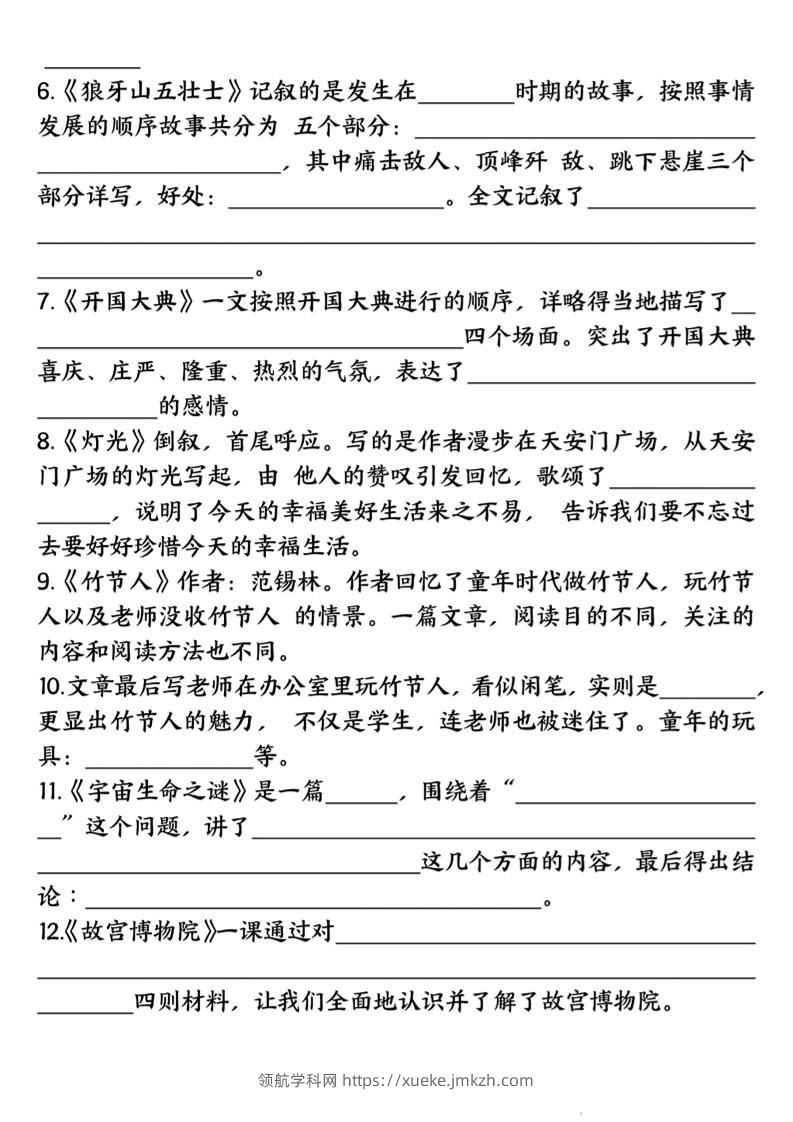 ________
6.《狼牙山五壮士》记叙的是发生在________时期的故事，按照事情
发展的顺序故事共分为 五个部分：____________________________
____________________，其中痛击敌人、顶峰歼 敌、跳下悬崖三个
部分详写，好处：__________________。全文记叙了______________
____________________________________________________________
__________________。
7.《开国大典》一文按照开国大典进行的顺序，详略得当地描写了__
____________________________________四个场面。突出了开国大典
喜庆、庄严、隆重、热烈的气氛，表达了________________________
__________的感情。
8.《灯光》倒叙，首尾呼应。写的是作者漫步在天安门广场，从天安
门广场的灯光写起，由 他人的赞叹引发回忆，歌颂了____________
______，说明了今天的幸福美好生活来之不易， 告诉我们要不忘过
去要好好珍惜今天的幸福生活。
9.《竹节人》作者：范锡林。作者回忆了童年时代做竹节人，玩竹节
人以及老师没收竹节人 的情景。一篇文章，阅读目的不同，关注的
内容和阅读方法也不同。
10.文章最后写老师在办公室里玩竹节人，看似闲笔，实则是________，
更显出竹节人的魅力， 不仅是学生，连老师也被迷住了。童年的玩
具：______________等。
11.《宇宙生命之谜》是一篇______，围绕着“____________________
__”这个问题，讲了__________________________________________
________________________________这几个方面的内容，最后得出结
论：______________________________________。
12.《故宫博物院》一课通过对___________________________________
____________________________________________________________
________四则材料，让我们全面地认识并了解了故宫博物院。
领航学科网 https://xueke.jmkzh.com